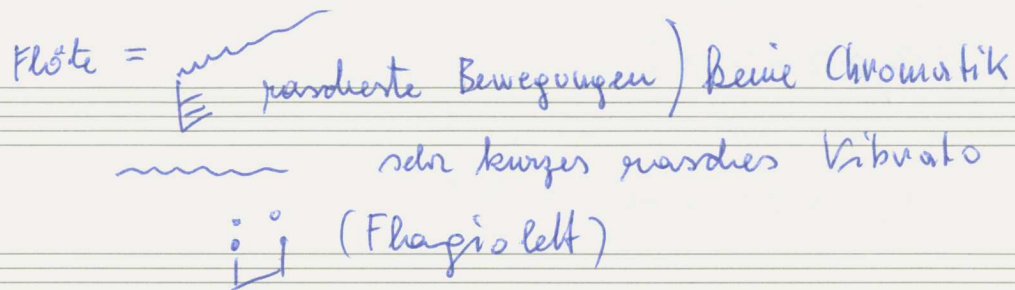 Flöte = rascheste Bewegungen) keine Chromatik
sehr kurzes rasches Vibrato
(Fhagiolett)